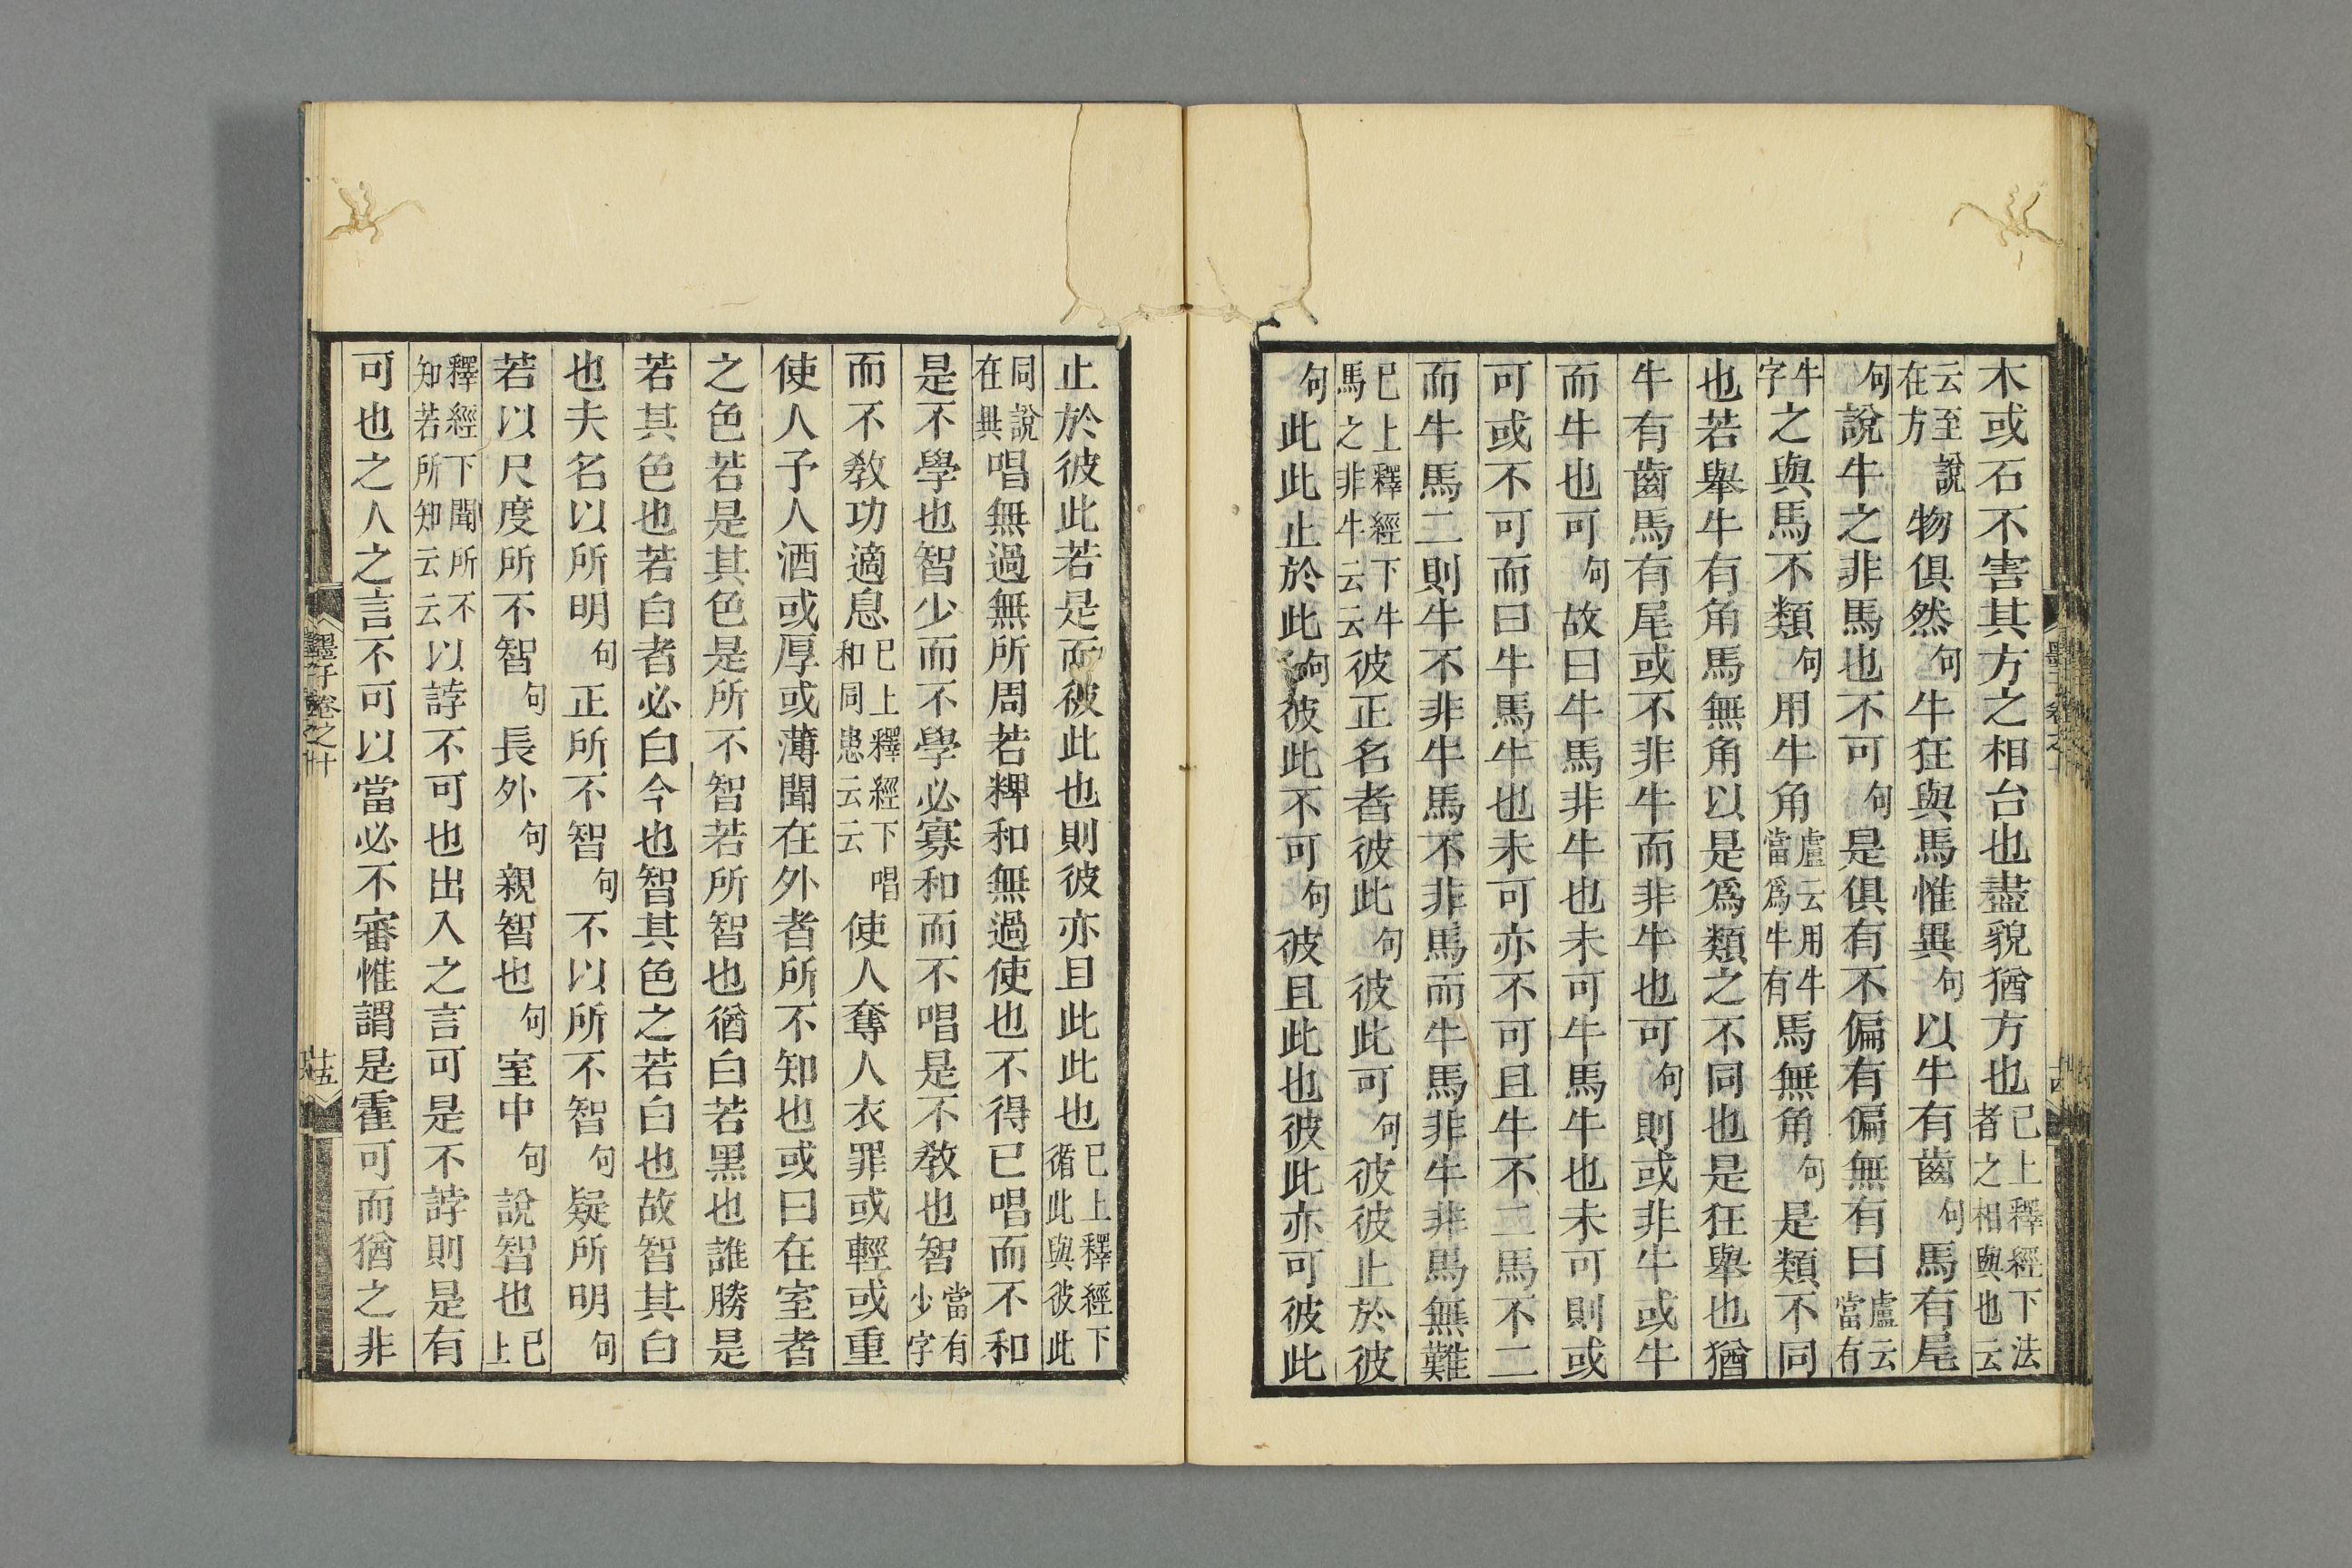 木或石不害其方之相台也盡貌猶方也已上釋經下法者之相與也云
云至說在方物俱然句牛狂與馬惟異句以牛有齒句馬有尾
句說牛之非馬也不可句是俱有不偏有偏無有曰盧云當有
牛字之與馬不類句用牛角盧云用牛當爲牛有馬無角句是類不同
也若舉牛有角馬無角以是爲類之不同也是狂舉也猶
牛有齒馬有尾或不非牛而非牛也可句則或非牛或牛
而牛也可句故曰牛馬非牛也未可牛馬牛也未可則或
可或不可而曰牛馬牛也未可亦不可且牛不二馬不二
而牛馬二則牛不非牛馬不非馬而牛馬非牛非馬無難
已上釋經下牛馬之非牛云云彼正名者彼此句彼此可句彼彼止於彼
句此此止於此句彼此不可句彼且此也彼此亦可彼此
止於彼此若是而彼此也則彼亦且此此也已上釋經下循此與彼此
同說在無唱無過無所周若粺和無過使也不得已唱而不和
是不學也智少而不學必寡和而不唱是不教也智當有少字
而不教功適息已上釋經下唱和同患云云使人奪人衣罪或輕或重
使人予人酒或厚或薄聞在外者所不知也或曰在室者
之色若是其色是所不智若所智也猶白若黑也誰勝是
若其色也若白者必白今也智其色之若白也故智其白
也夫名以所明句正所不智句不以所不智句疑所明句
若以尺度所不智句長外句親智也句室中句說智也已上
釋經下聞所不知若所知云云以誖不可也出入之言可是不誖則是有
可也之人之言不可以當必不審惟謂是霍可而猶之非
墨子卷之十
十五